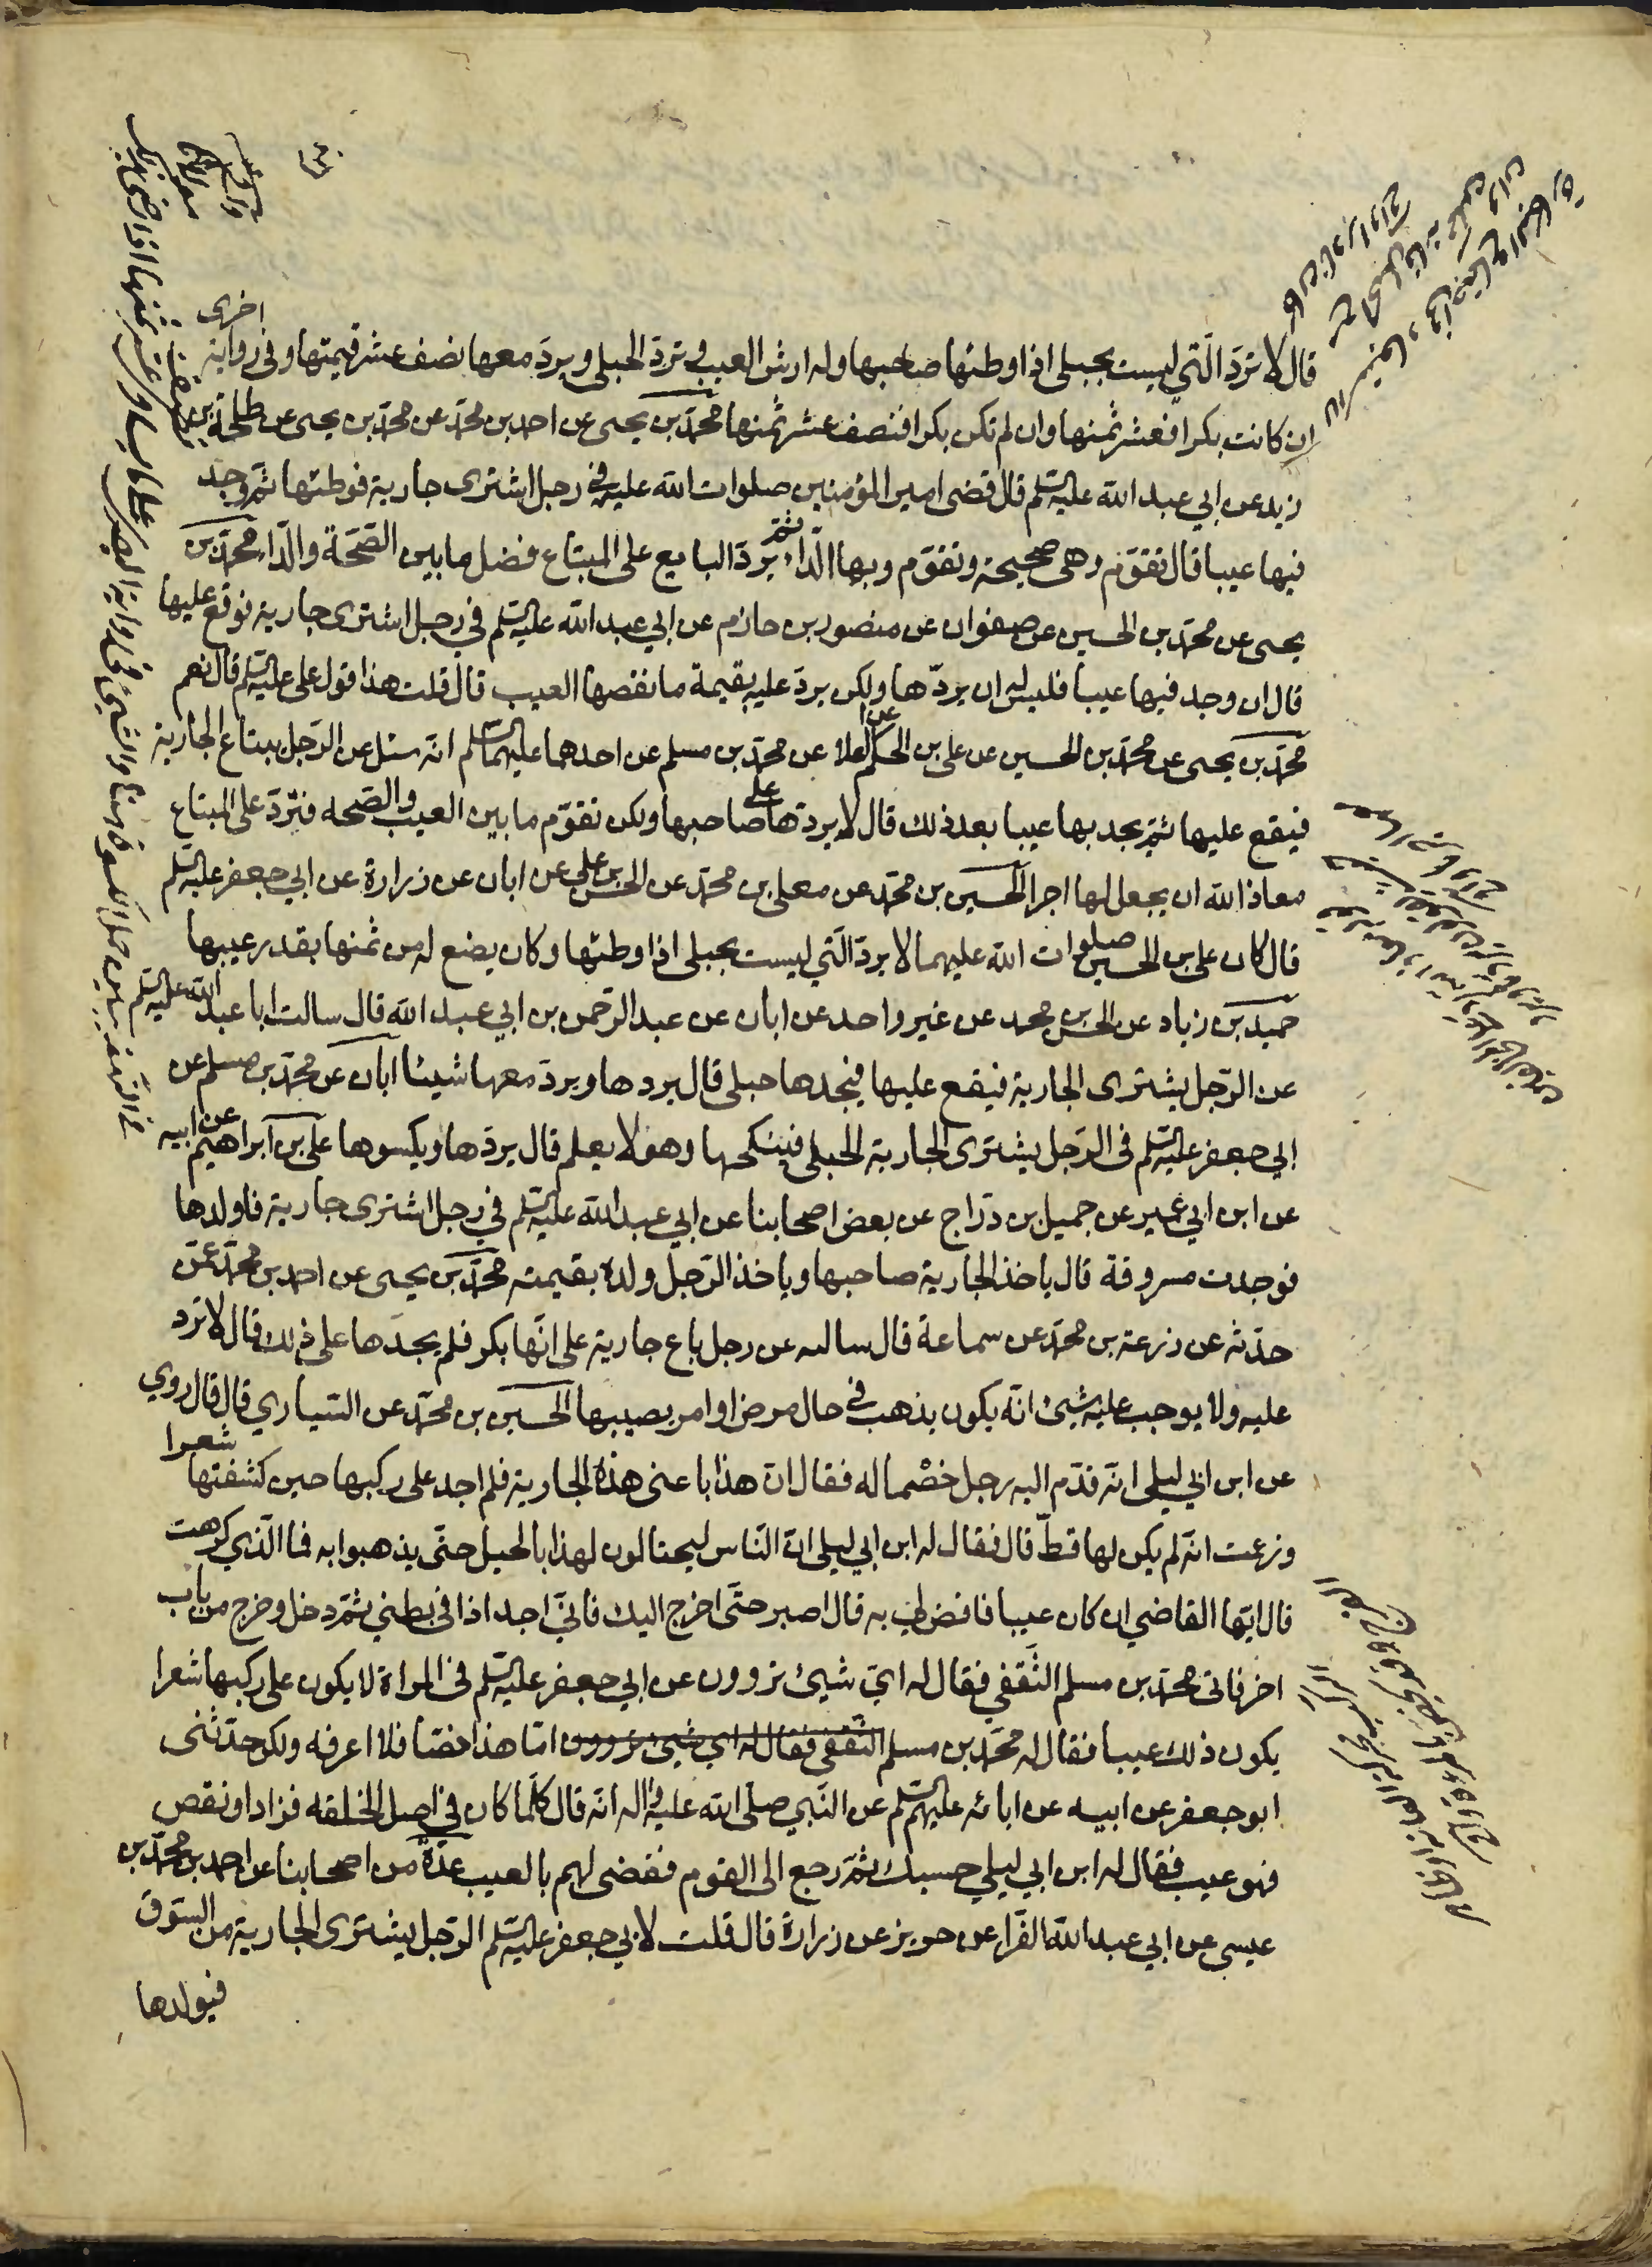 قال لا تردّ الّتي ليست بحبلى اذا وطئها صاحبها وله ارش العيب و تردّ الحبلى و يردّ معها نصف عشر قيمتها و في رواية اخرى
ان كانت بكرا فعشر ثمنها وان لم تكن بكرا فنصف عشر ثمنها محمّد بن يحيى عن احمد بن محمّد عن محمّد بن يحيى عن طلحة بن
زيد عن ابي عبد الله عليه السّلم قال قضى امير المؤمنين صلوات الله عليه في رجل اشترى جارية فوطئها ثمّ وجد
فيها عيبا قال تقوّم وهي صحيحة وتقوّم وبها الدّاء ثمّ يردّ البايع على المبتاع فضل ما بين الصّحّة والدّاء محمّد بن
يحيى عن محمّد بن الحسين عن صفوان عن منصور بن حازم عن ابي عبد الله عليه السّلم في رجل اشترى جارية فوقع عليها
قال ان وجد فيها عيبا فليس له ان يردّها ولكن يردّ عليه بقيمة ما نقصها العيب قال قلت هذا قول علي عليه السّلم قال نعم
محمّد بن يحيى عن محمّد بن الحسين عن علي بن الحكم عن العلا عن محمّد بن مسلم عن احدهما عليهما السّلم انّه سئل عن الرّجل يبتاع الجارية
فيقع عليها ثمّ يجد بها عيبا بعد ذلك قال لا يردّها على صاحبها ولكن تقوّم ما بين العيب والصّحه فتردّ على المبتاع
معاذ الله ان يجعل لها اجرا الحسين بن محمّد عن معلى بن محمّد عن الحسن بن علي عن ابان عن زرارة عن ابي جعفر عليه السّلم
قال كان علي بن الحسين صلوات الله عليهما لا يردّ الّتي ليست بحبلى اذا وطئها وكان يضع له من ثمنها بقدر عيبها
حميد بن زياد عن الحسن بن محمد عن غير واحد عن ابان عن عبد الرّحمن بن ابي عبد الله قال سالت ابا عبد الله عليه السّلم
عن الرّجل يشترى الجارية فيقع عليها فيجدها حبلى قال يردها ويردّ معها شيئا ابان عن محمّد بن مسلم عن
ابي جعفر عليه السّلم في الرّجل يشترى الجارية الحبلى فينكحها وهو لا يعلم قال يردّها ويكسوها علي بن ابراهيم عن ابيه
عن ابن ابي عمير عن جميل بن درّاج عن بعض اصحابنا عن ابي عبد الله عليه السّلم في رجل اشترى جارية فاولدها
فوجدت مسروقة قال ياخذ الجارية صاحبها وياخذ الرّجل ولده بقيمته محمّد بن يحيى عن احمد بن محمّد عمّن
حدّثه عن زرعة بن محمّد عن سماعة قال سالته عن رجل باع جارية على انّها بكر فلم يجدها على ذلك قال لا تردّ
عليه ولا يوجب عليه شيئ انّه يكون يذهب في حال مرض او امر يصيبها الحسين بن محمّد عن السّياري قال قال روي
عن ابن ابي ليلى انّه قدّم اليه رجل خصْما له فقال انّ هذا باعنى هذه الجارية فلم اجد على ركبها حين كشفتها شعرا
وزعمت انّه لم يكن لها قطّ قال فقال له ابن ابي ليلى انّ النّاس ليحتالون لهذا بالحيل حتّى يذهبوا به فما الّذي كرهت
قال ايّها القاضي ان كان عيبا فاقض لي به قال اصبر حتّى اخرج اليك فانّي اجد اذا في بطني ثمّ دخل وخرج من باب
اخر فاتى محمّد بن مسلم الثّقفي فقال له ايّ شيئ تروون عن ابي جعفر عليه السّلم في المراة لا يكون على ركبها شعرا
يكون ذلك عيبا فقال له محمّد بن مسلم الثّقفي فقال له اي شيئ تروون امّا هذا نصّا فلا اعرفه ولكن حدّثنى
ابو جعفر عن ابيه عن ابائه عليهم السّلم عن النّبي صلّى الله عليه واله انّه قال كلّما كان في اصل الخلقه فزاد او نقص
فهو عيب فقال له ابن ابي ليلي حسبك ثمّ رجع الى القوم فقضى لهم بالعيب عدّة من اصحابنا عن احمد بن محمّد بن
عيسى عن ابي عبد الله الفرّاء عن حريز عن زرارة قال قلت لابي جعفر عليه السّلم الرّجل يشترى الجارية من السّوق
فيولدها